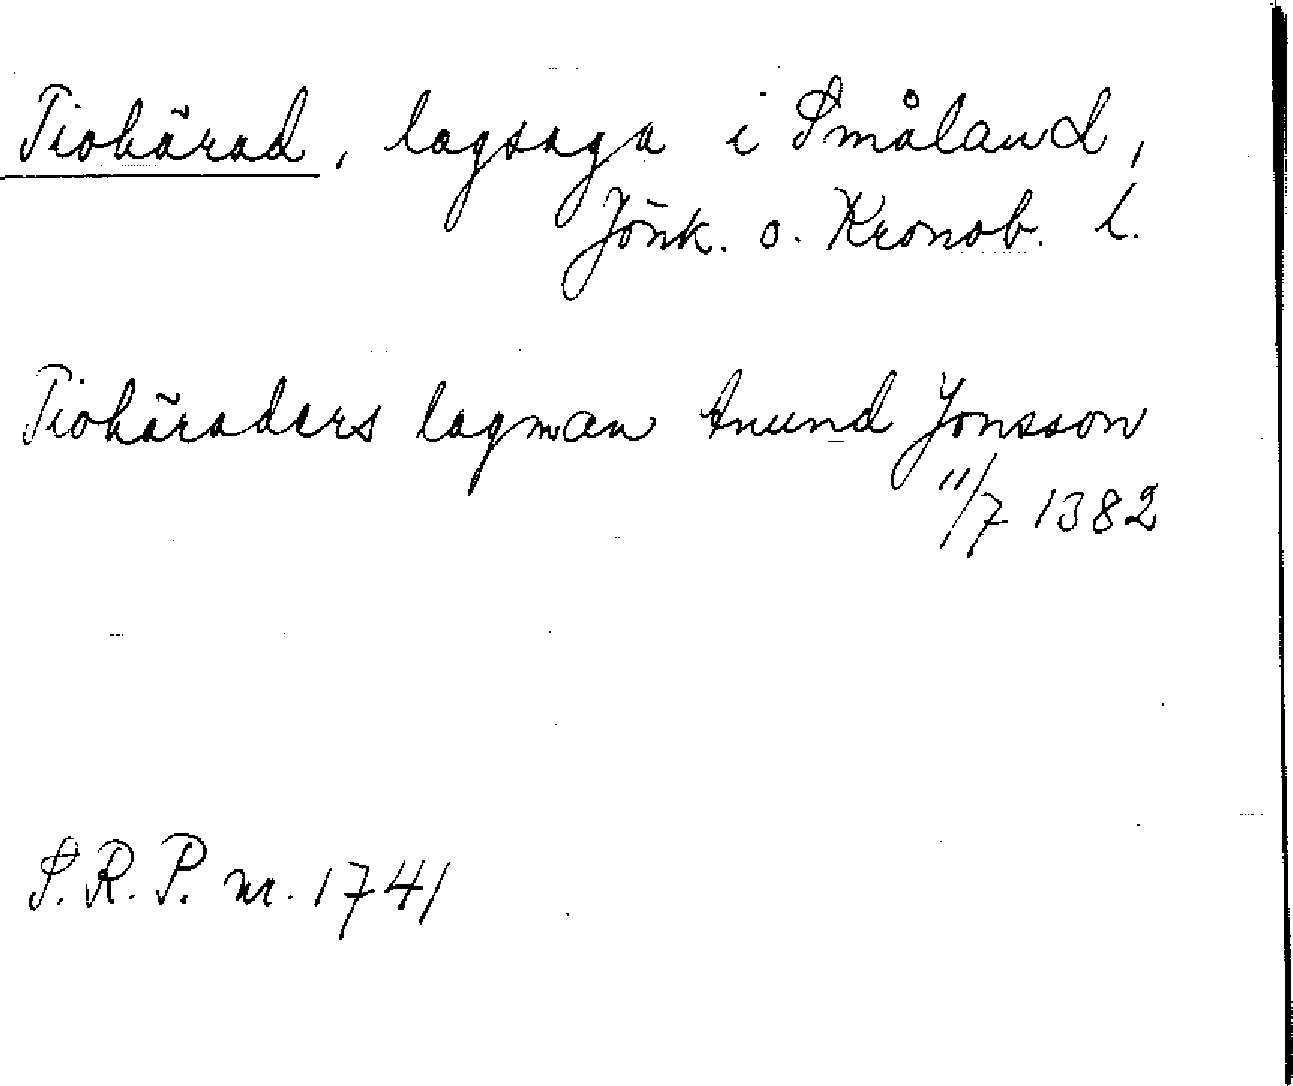 Tiohärad, lagsaga i Småland,
Jönk. o. Kronob. l.
Tiohäraders lagman Anund Jonsson
11/7 1382
S.R.P. nr. 1741